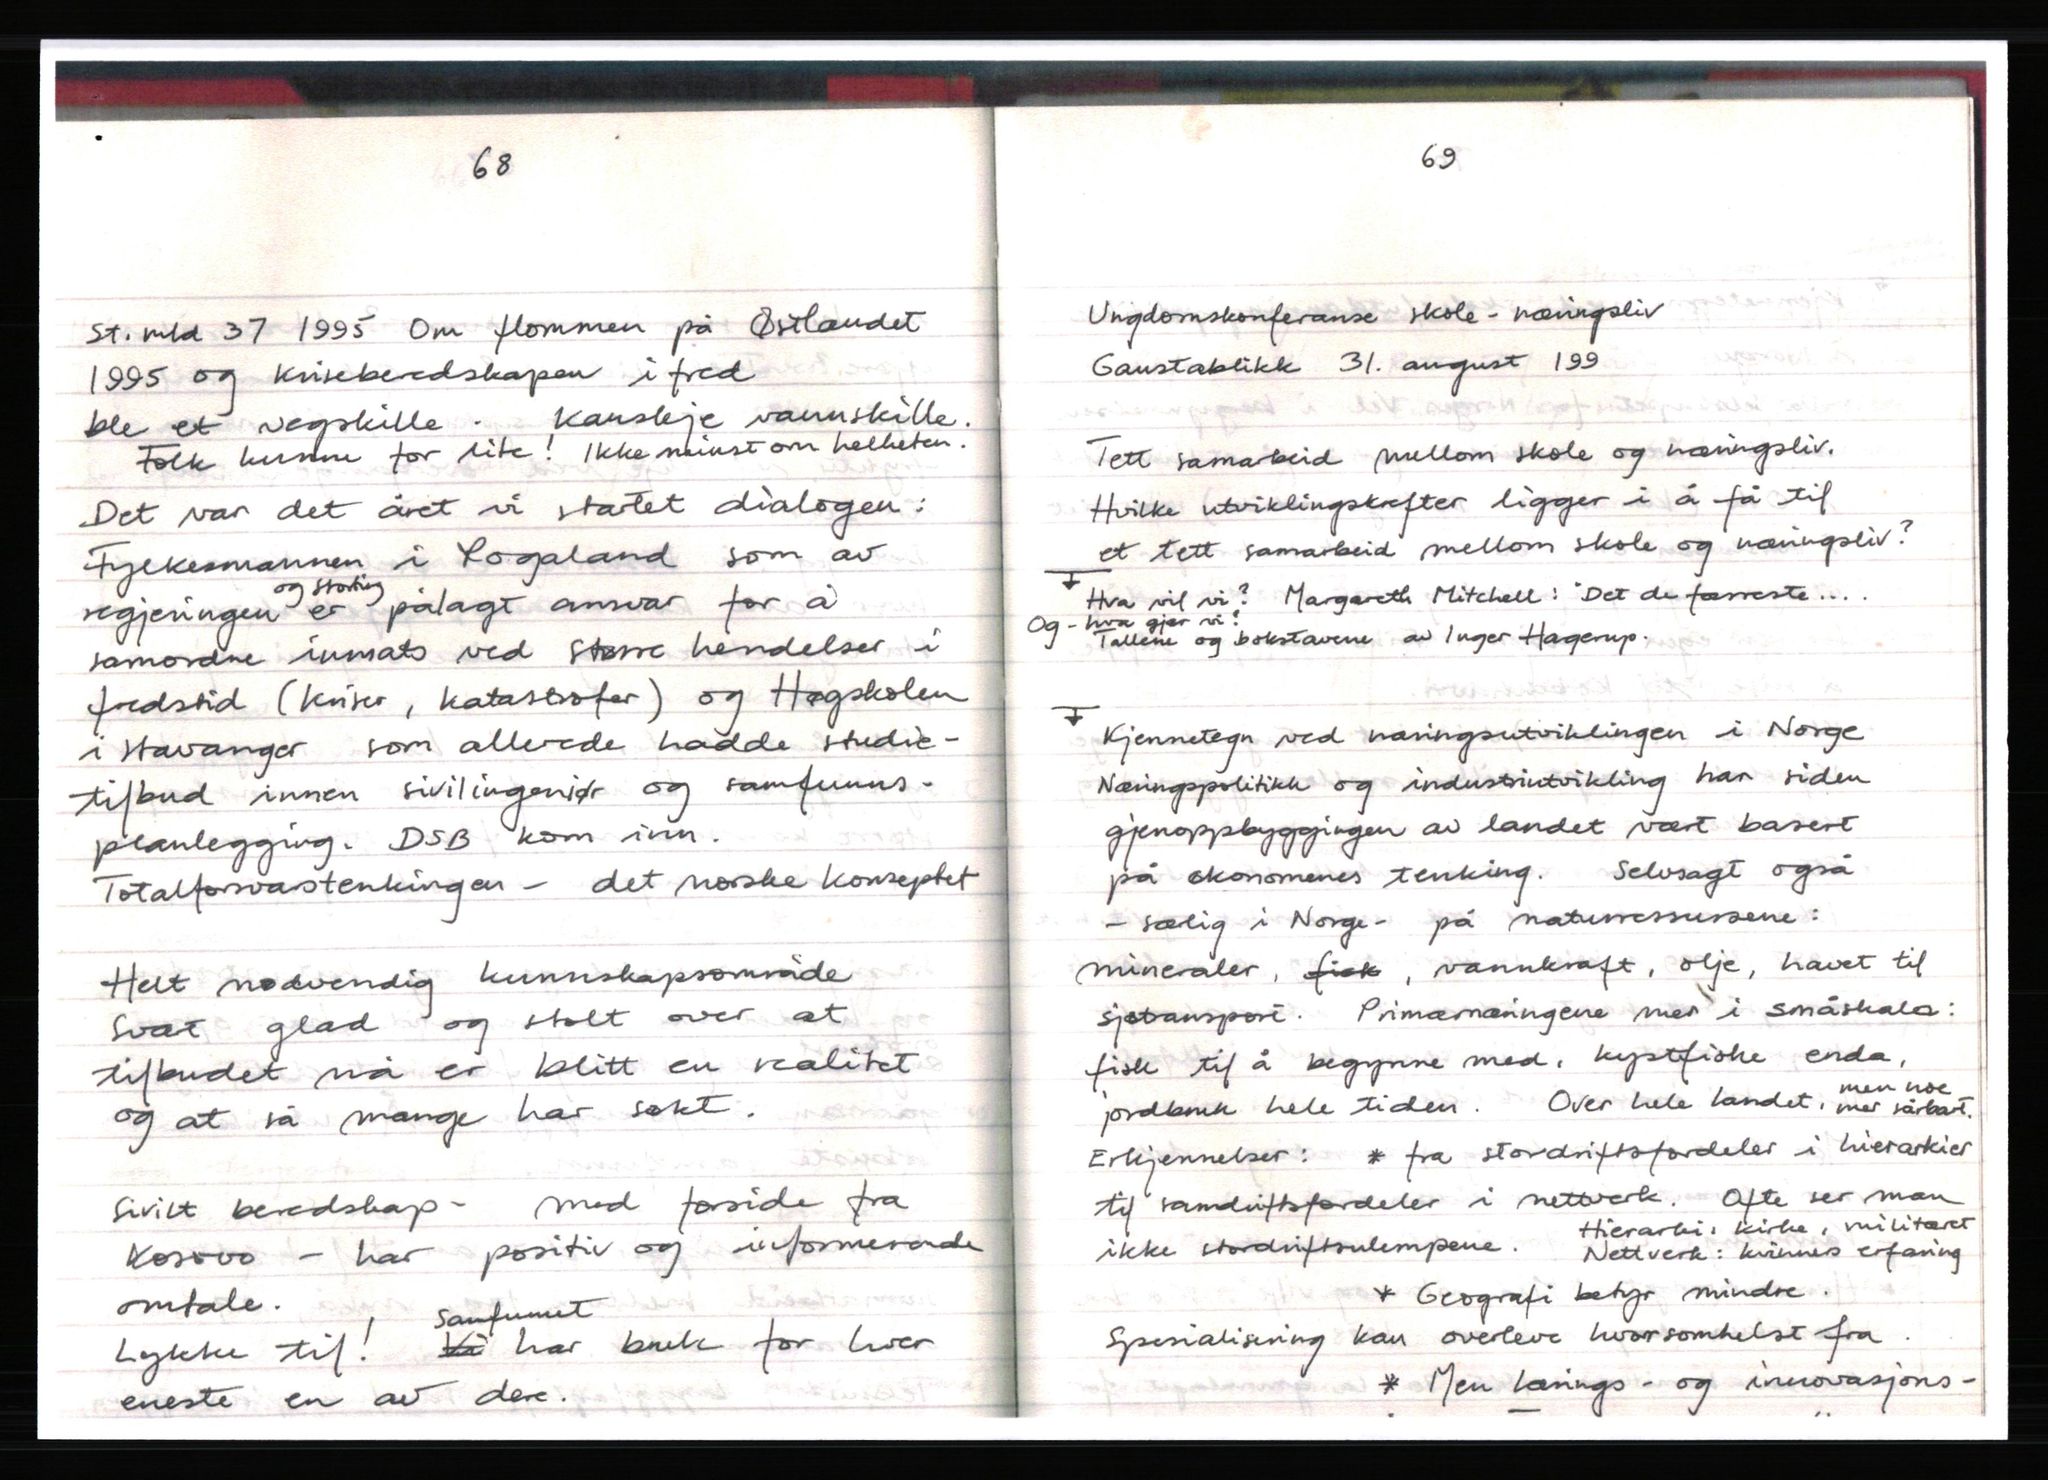 68
St. mld 37 1995 Om flommen på Østlandet
1995 og kriseberedskapen i fred
ble et vegskille. Kanskje vannskille.
Folk kunne for lite! Ikke minst om helheten.
Det var det året vi startet dialogen:
Fylkesmannen i Rogaland som av
og storting
regjeringen er pålagt ansvar for å
samordne innsats ved større hendelser i
fredstid (kriser, katastrofer) og Høgskolen
i Stavanger som allerede hadde studie-
tilbud innen sivilingeniør og samfunns-
planlegging. DSB kom inn.
Totalforsvarstenkingen - det norske konseptet
Helt nødvendig kunnskapsområde
Svært glad og stolt over at
tilbudet nå er blitt en realitet
og at så mange har søkt.
Sivilt beredskap - med forside fra
Kosovo - har positiv og informerende
omtale.
Samfunnet
Lykke til! Vi har bruk for hver
eneste en av dere.
69
Ungdomskonferanse skole - næringsliv
Gaustablikk 31. august 199
Tett samarbeid mellom skole og næringsliv.
Hvilke utviklingskrefter ligger i å få til
et tett samarbeid mellom skole og næringsliv?
Hva vil vi? Margareth Mitchell: Det de færreste....
Og - hva gjør vi?
Tallene og bokstavene av Inger Hagerup.
Kjennetegn ved næringsutviklingen i Norge
Næringspolitikk og industriutvikling har siden
gjenoppbyggingen av landet vært basert
på økonomenes tenking. Selvsagt også
- særlig i Norge - på naturressursene:
mineraler, fisk, vannkraft, olje, havet til
sjøtransport. Primærnæringene mer i småskala:
fisk til å begynne med, kystfiske enda,
jordbruk hele tiden. Over hele landet, men noe
mer sårbart.
Erkjennelser: * fra stordriftsfordeler i hierarkier
til samdriftsfordeler i nettverk. Ofte ser man
ikke stordriftsulempene. Hierarki: kirke, militæret
Nettverk: kvinners erfaring
* Geografi betyr mindre.
Spesialisering kan overleve hvorsomhelst fra.
* Men lærings- og innovasjons-